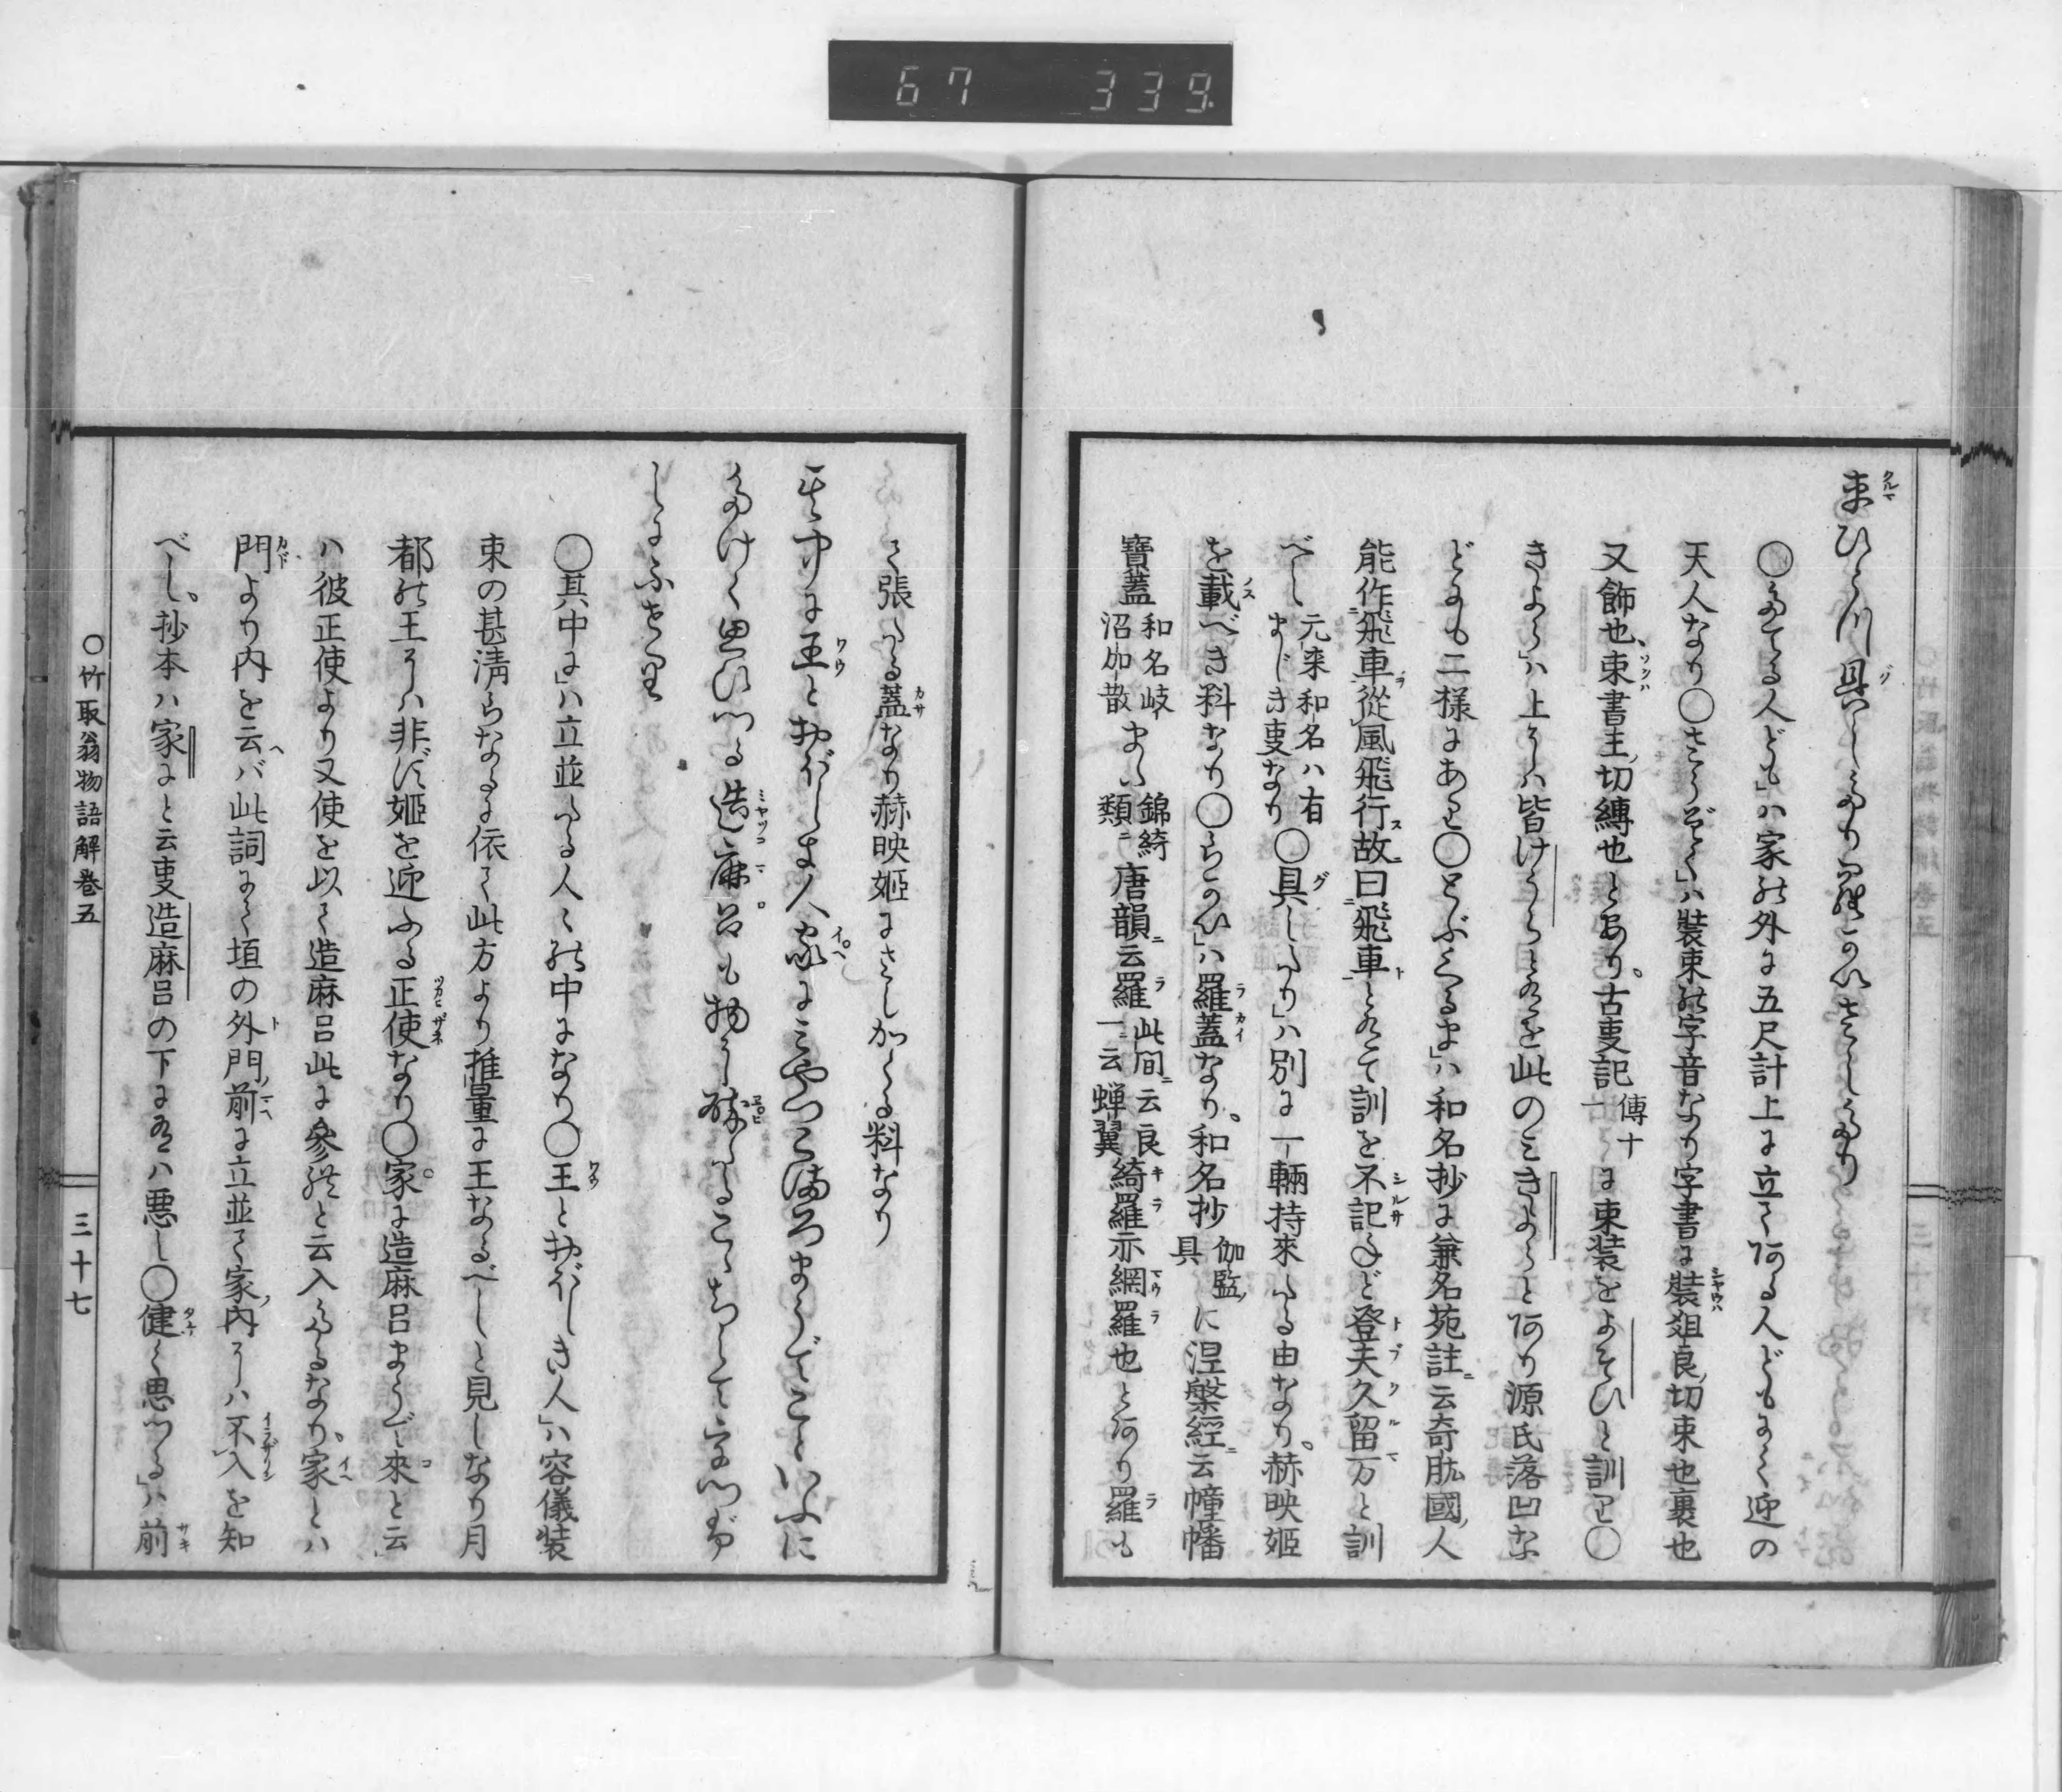 67 339
車ひとつ具したり羅かいさしたり
〇たてる人ども」ハ家の外に五尺計上に立て阿る人どもにて迎の
天人なり〇さうぞく」ハ装束の字音なり字書に裝爼良切束也裹也
又飾也、束書玉切縛也とあり。古事記傳十一に束装をよそひと訓り〇
きよら」ハ上にハ皆けうらと有を此のミきよらと阿り源氏落凹な
どにも二様にあり〇とぶくるま」ハ和名抄に兼名苑註云奇肱國人
能作飛車從風飛行故曰飛車と有て訓を不記ねど登夫久留万と訓
べし元来和名ハ有まじき事なり〇具したり」ハ別に一輛持來たる由なり。赫映姫
を載べき料なり〇らかい」ハ羅蓋なり。和名抄伽藍具に涅槃經云幢幡
寶蓋和名岐沼加散また錦綺類唐韻云羅此間云良一云蝉翼綺羅亦網羅也と阿り羅も
て張たる蓋なり赫映姫にさし加くる料なり
其中に王とおぼしき人家にみやつこまろまうでこといふに
たけく思ひつる造麻呂も物に酔たるこゝちしてうつぶ
しにふせり
〇其中に」ハ立並たる人〻の中になり〇王とおぼしき人」ハ容儀装
束の甚清らなるに依て此方より推量に王なるべしと見しなり月
都の王にハ非ず姫を迎ふる正使なり〇家に造麻呂まうで來と云
ハ彼正使より又使を以て造麻呂此に參れと云入たるなり。家とハ
門より内を云ヘバ此詞にて垣の外門前に立並て家内にハ不入を知
べし、抄本ハ家にと云事造麻呂の下に有ハ悪し〇健く思つる」ハ前
〇竹取翁物語解巻五
三十七